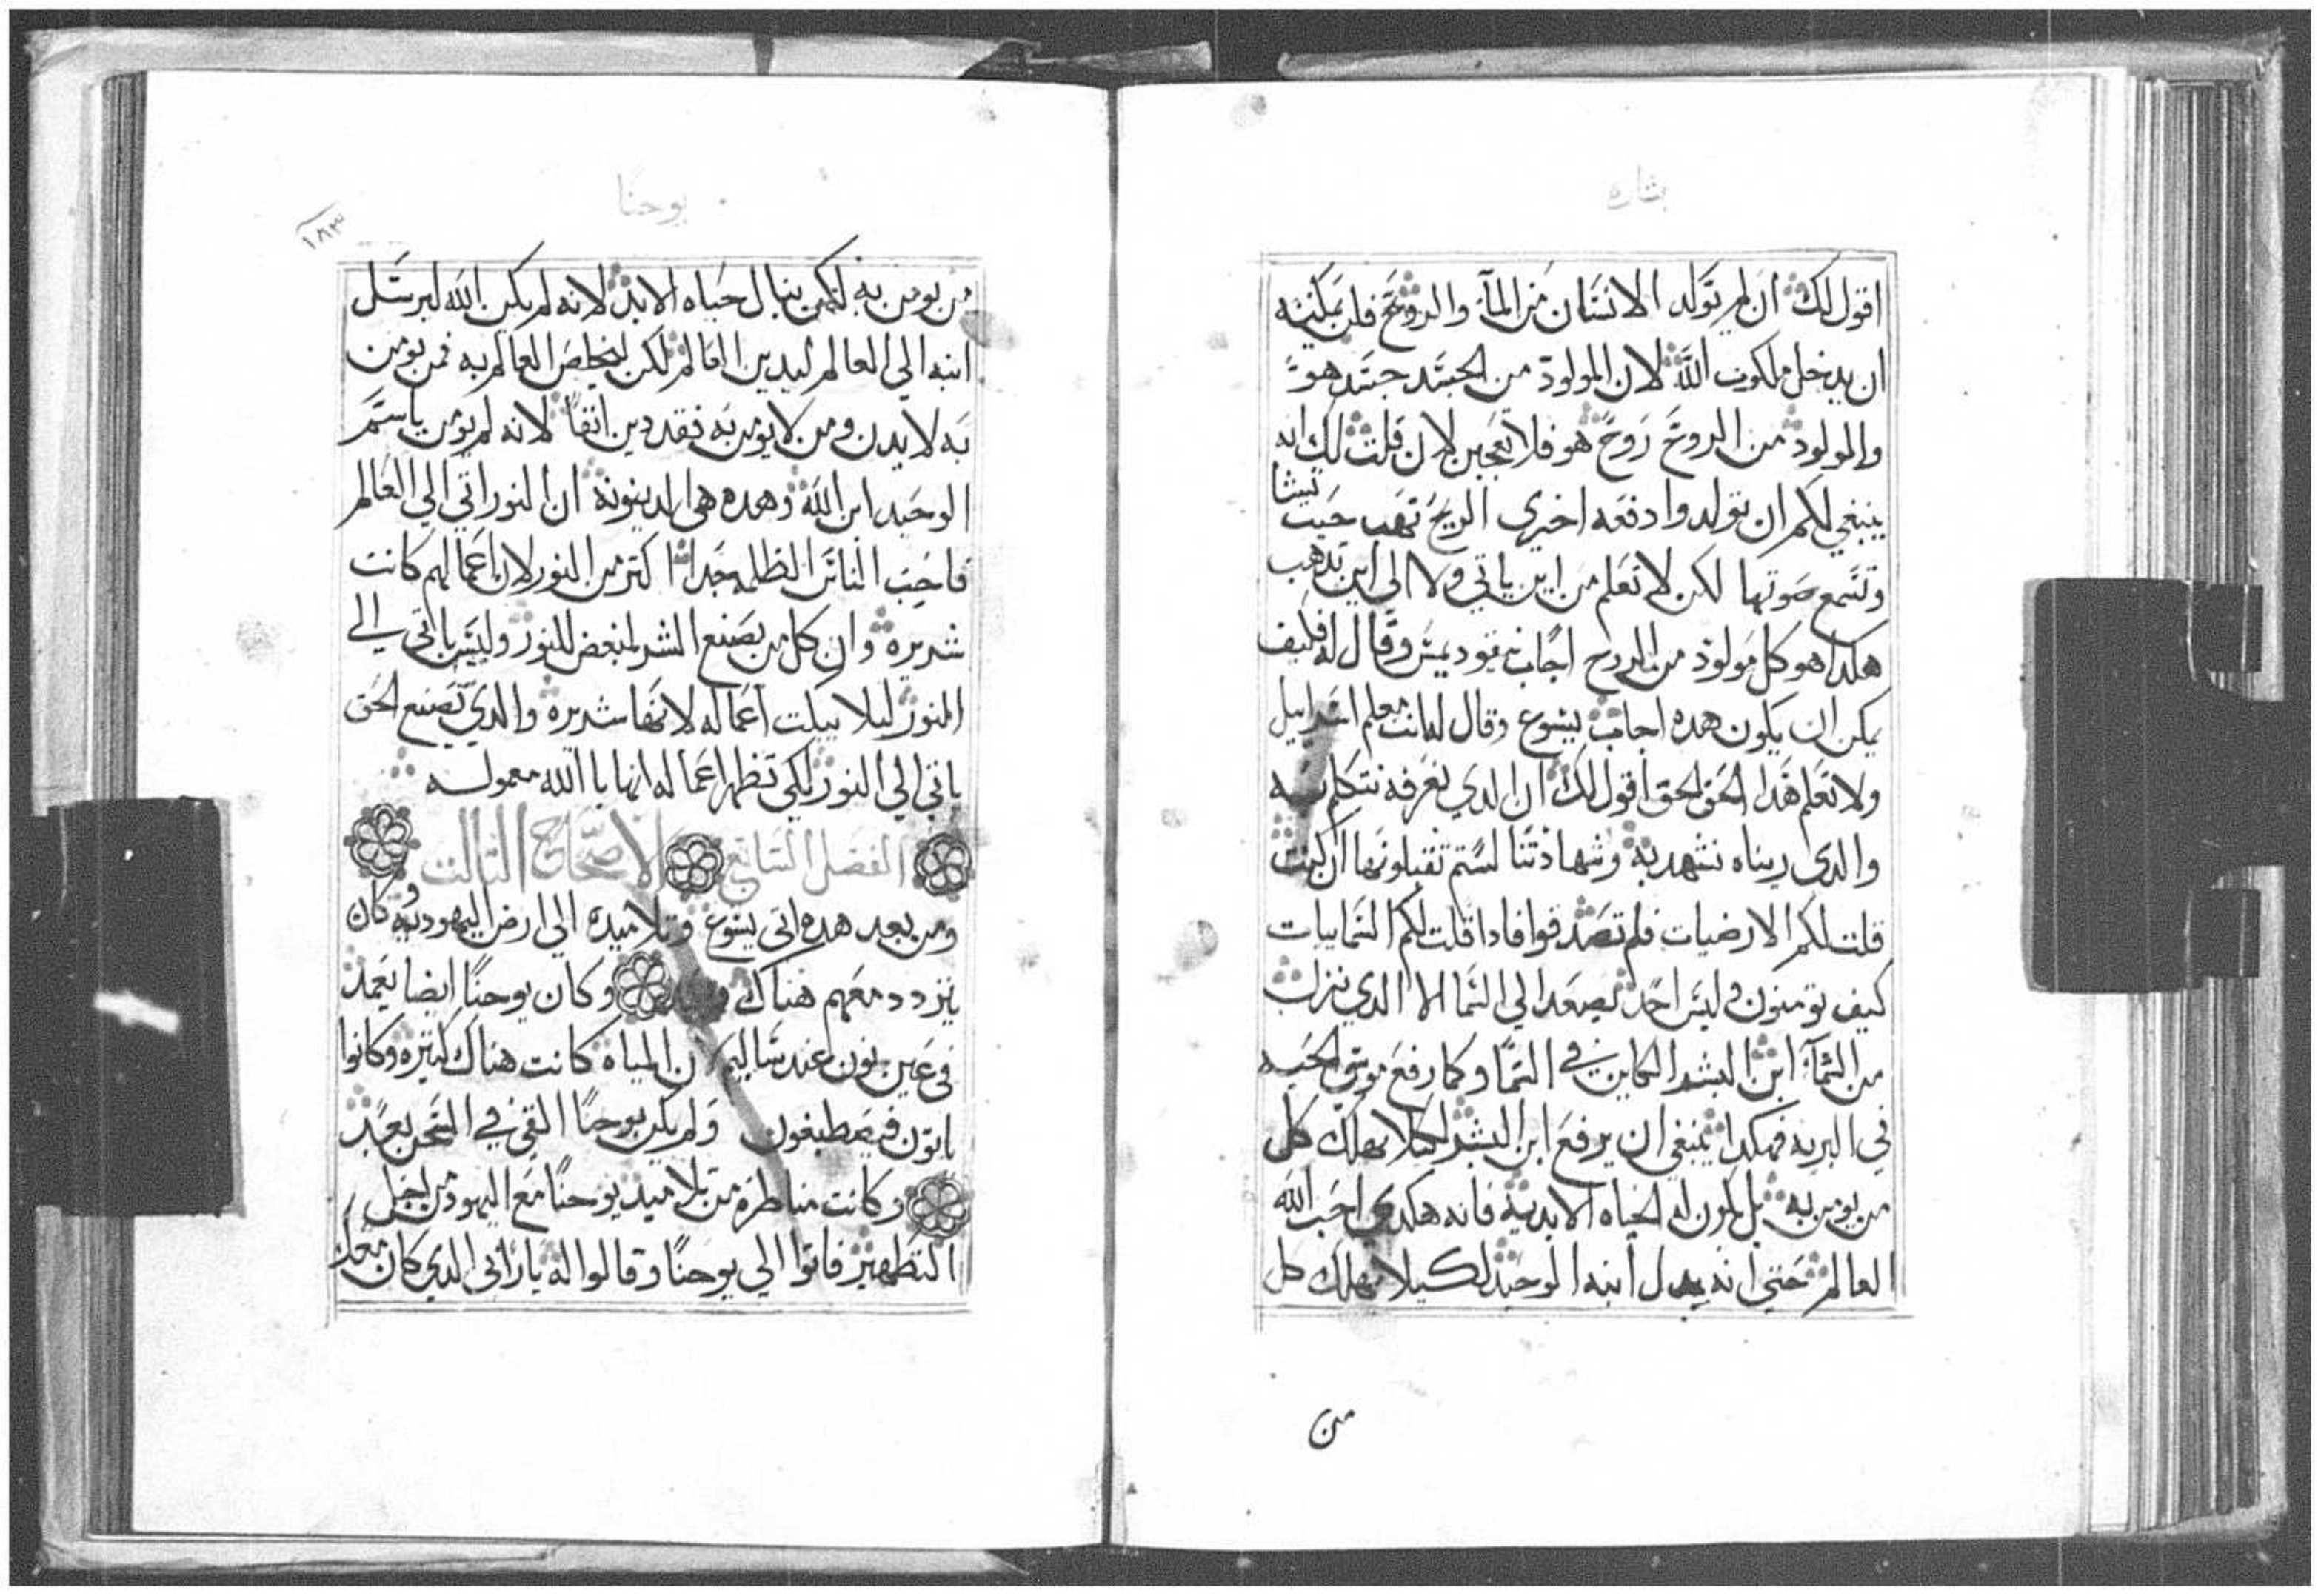 بشاره
اقول لك ان لم تولد الانسان من المآ والروح فلن يمكنه
ان يدخل ملكوت الله لان المولود من الجسد جسد هو
والمولود من الروح روح هو فلا تعجبن لان قلت لك انه
ينبغي لكم ان تولدوا دفعه اخري الريح تهب حيت تيشا
وتسمع صوتها لكن لا تعلم من اين ياتي ولا الي اين تدهب
هكدا هو كل مولود من الروح اجاب نيقوديمس وقال له فكيف
يمكن ان يكون هده اجاب يسوع وقال له انت معلم اسراييل
ولا تعلم هدا الحق الحق اقول لك ان الدي نعرفه نتكلم به
والدي ريناه نشهد به وشهادتنا لستم تقبلونها ان كنت
قلت لكم الارضيات فلم تصدقوا فادا قلت لكم السماييات
كيف تومنون وليس احد يصعد الي السما الا الدي نزل
من السمآ ابن البشر الكاين في السما وكما رفع موسي الحيه
في البريه فهكدا ينبغي ان يرفع ابن البشر لكيلا يهلك كل
من يومن به بل يكون له الحياه الابديه فانه هكدي احب الله
العالم حتي انه بدل ابنه الوحيد لكيلا يهلك كل
من
يوحنا
١٨٣
من يومن به لكن ينال حياه الابد لانه لم يكن الله ليرسل
ابنه الي العالم ليدين العالم لكن ليخلص العالم به فمن يومن
به لا يدن ومن لا يومن به فقد دين انفا لانه لم يومن باسم
الوحيد ابن الله وهده هي الدينونه ان النور اتي الي العالم
فاحب الناس الظلمه جدا اكتر من النور لان اعمالهم كانت
شريره وان كل من يصنع الشر لمبغض للنور وليس ياتي الي
النور ليلا يبكت اعماله لانها شريره والدي يصنع الحق
ياتي الي النور لكي تظهر اعماله انها باالله معموله
الفصل السابع الاصحاح التالت
ومن بعد هده اتي يسوع وتلاميده الي ارض اليهوديه كان
يتردد معهم هناك وكان يوحنا ايضا يعمد
في عين نون عند ساليم لان المياه كانت هناك كتيره وكانوا
ياتون فيصطبغون ولم يكن يوحنا القي في السجن بعد
وكانت مناظره من تلاميد يوحنا مع اليهود من اجل
التطهير فاتوا الي يوحنا وقالوا له يا رابي الدي كان معك